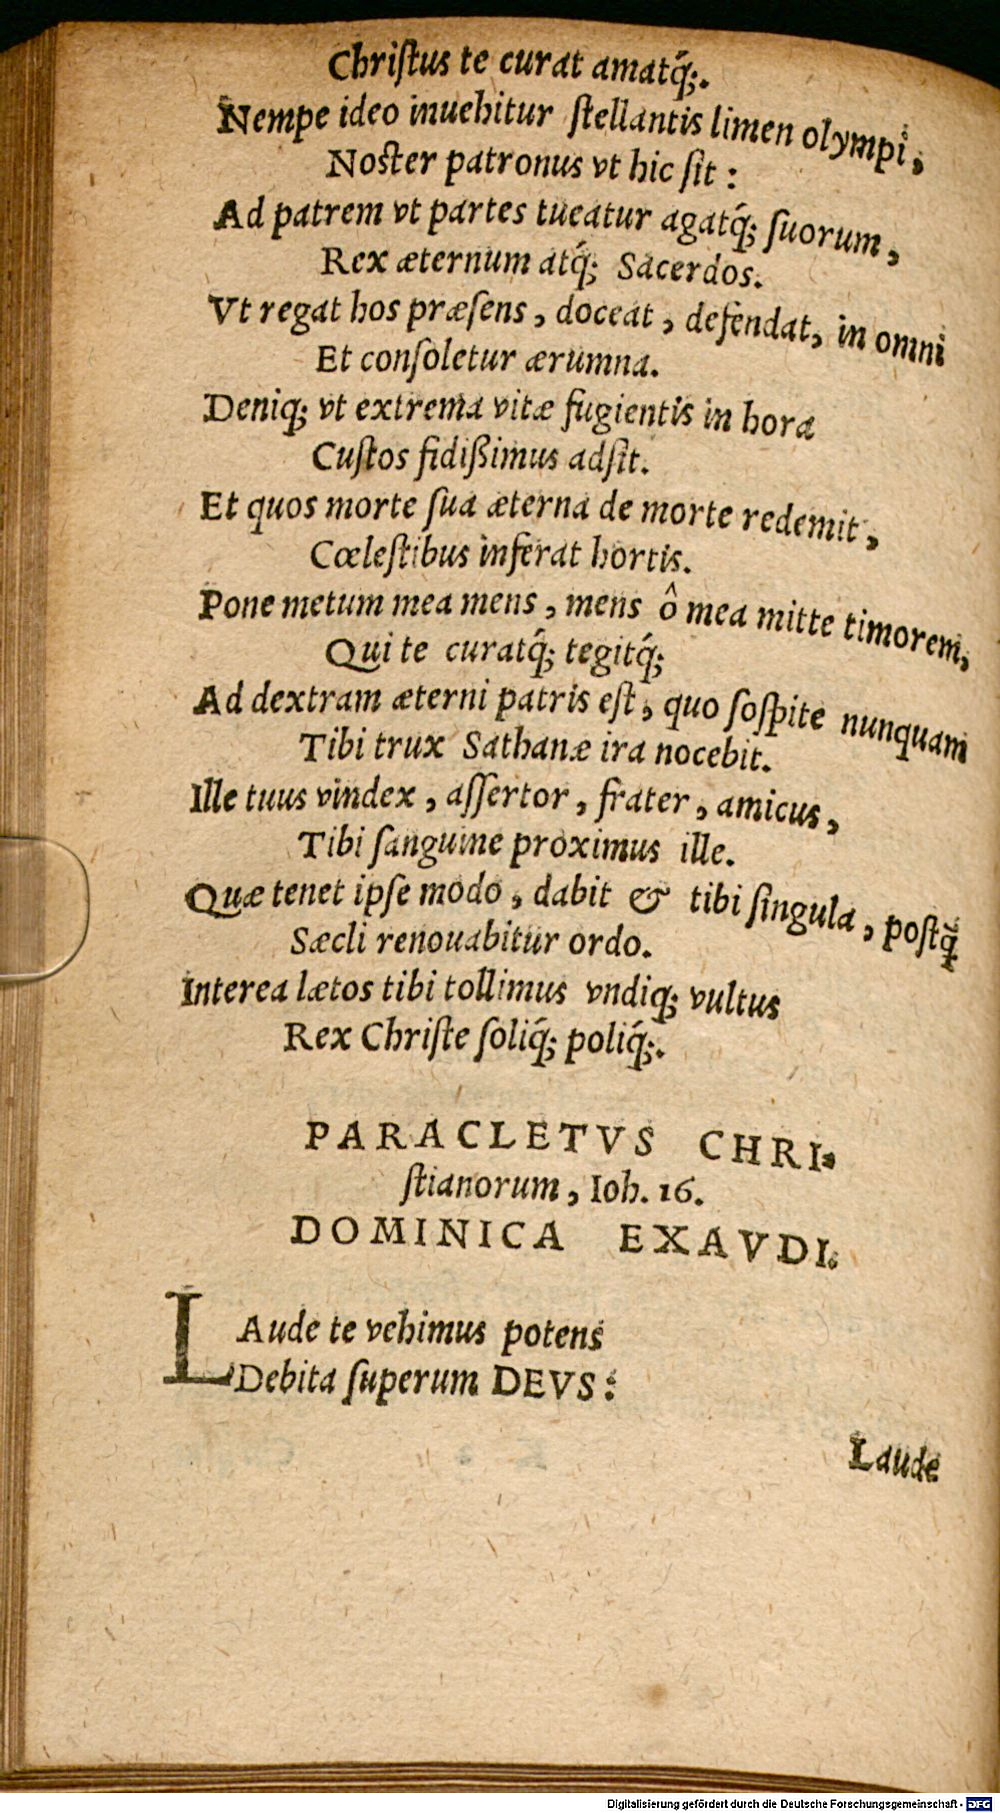 Chriſtus te curat amatq́;.
Nempe ideo inuehitur ſtellantis limen olympi,
Noster patronus vt hic ſit :
Ad patrem vt partes tueatur agatq́; ſuorum,
Rex æternum atq́; Sacerdos.
Vt regat hos præſens, doceat, defendat, in omni
Et conſoletur ærumna.
Deniq; vt extrema vitæ fugientis in hora
Cuſtos fidißimus adſit.
Et quos morte ſua æterna de morte redemit,
Cœleſtibus inferat hortis.
Pone metum mea mens, mens ô mea mitte timorem,
Qui te curatq́; tegitq́;
Ad dextram æterni patris eſt, quo ſoſpite nunquam
Tibi trux Sathanæ ira nocebit.
Ille tuus vindex, aſſertor, frater, amicus,
Tibi ſanguine proximus ille.
Quæ tenet ipſe modo, dabit & tibi ſingula, poſtq̃
Sæcli renouabitur ordo.
Interea lætos tibi tollimus vndiq; vultus
Rex Chriſte ſoliq́; poliq́;.
PARACLETVS CHRI-
ſtianorum, Ioh. 16.
DOMINICA EXAVDI.
LAude te vehimus potens
Debita ſuperum DEVS:
Laude
Digitalisierung gefördert durch die Deutsche Forschungsgemeinschaft - DFG